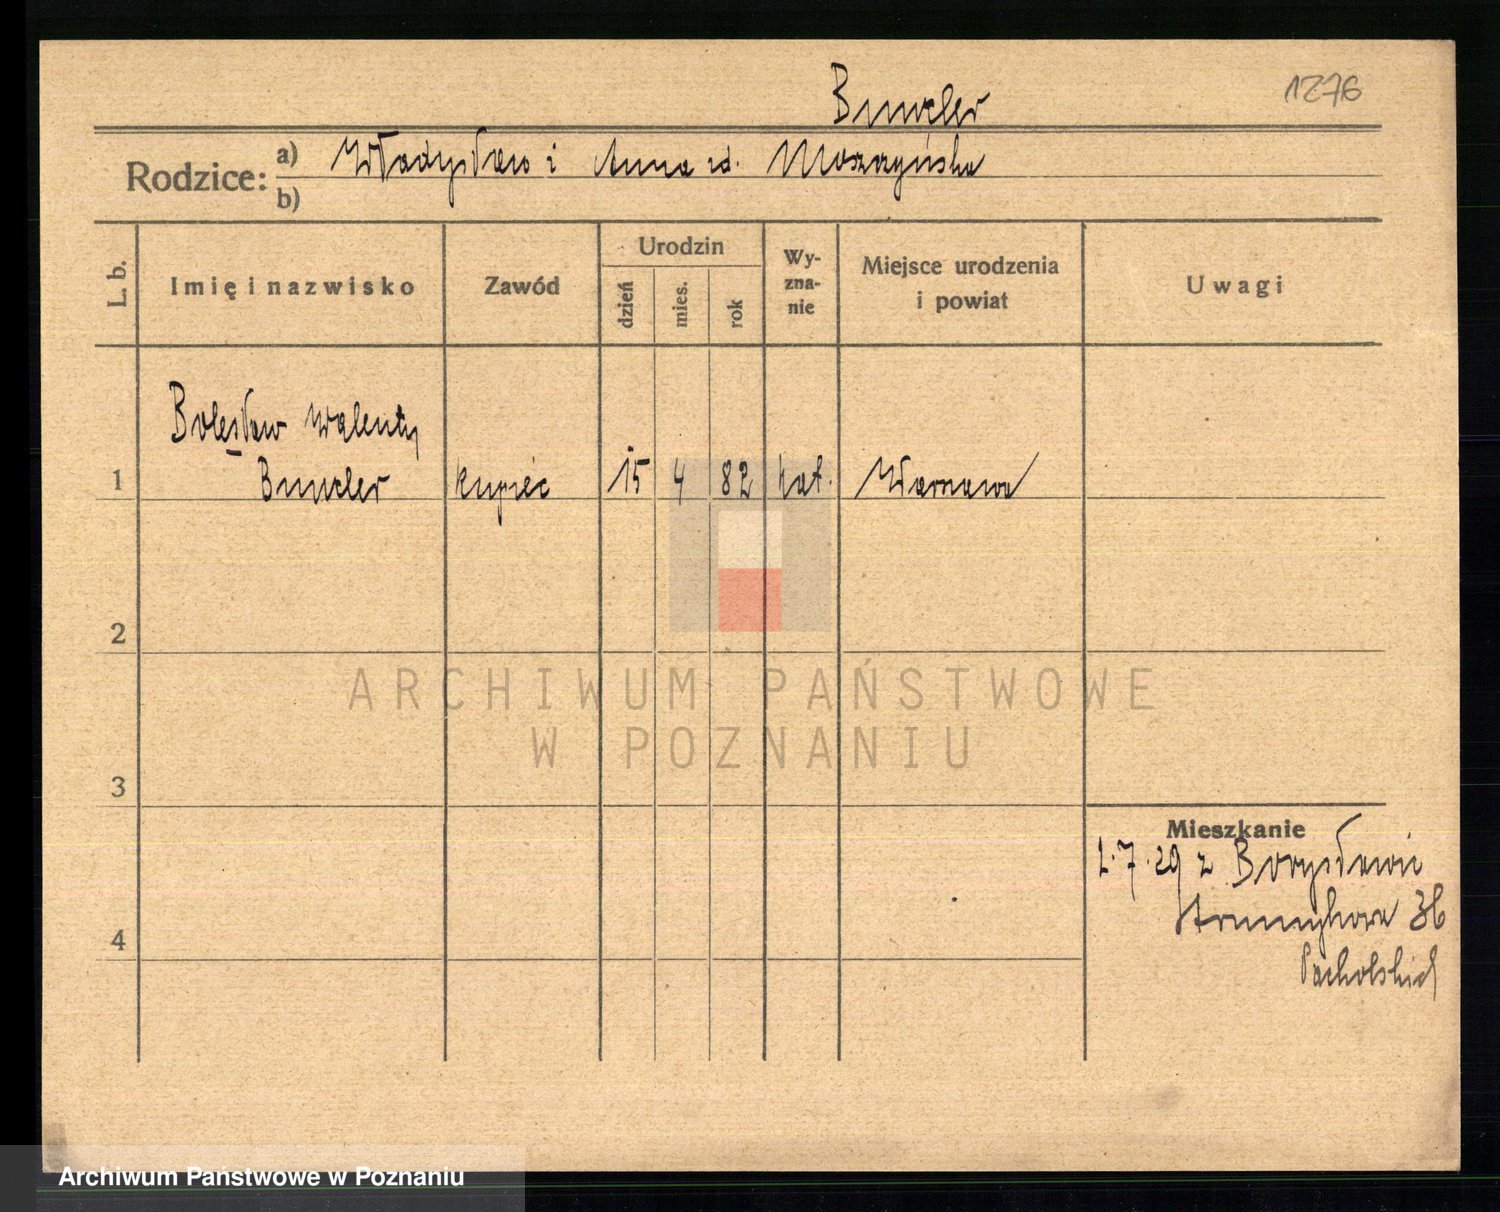 Buncler
1276
Rodzice:
a) Władysław i Anna zd. Moszczyńska
b)
L. b.
Imię i nazwisko
Zawód
Urodzin
dzień
mies.
rok
Wy-
zna-
nie
Miejsce urodzenia
i powiat
Uwagi
Bolesław Walenty
1 Buncler kupiec 15 4 82 kat. Warszawa
2
ARCHIWUM PAŃSTWOWE
W POZNANIU
3
Mieszkanie
2.7.29 z Borysławic
Strumykowa 36
Pacholskich
4
Archiwum Państwowe w Poznaniu